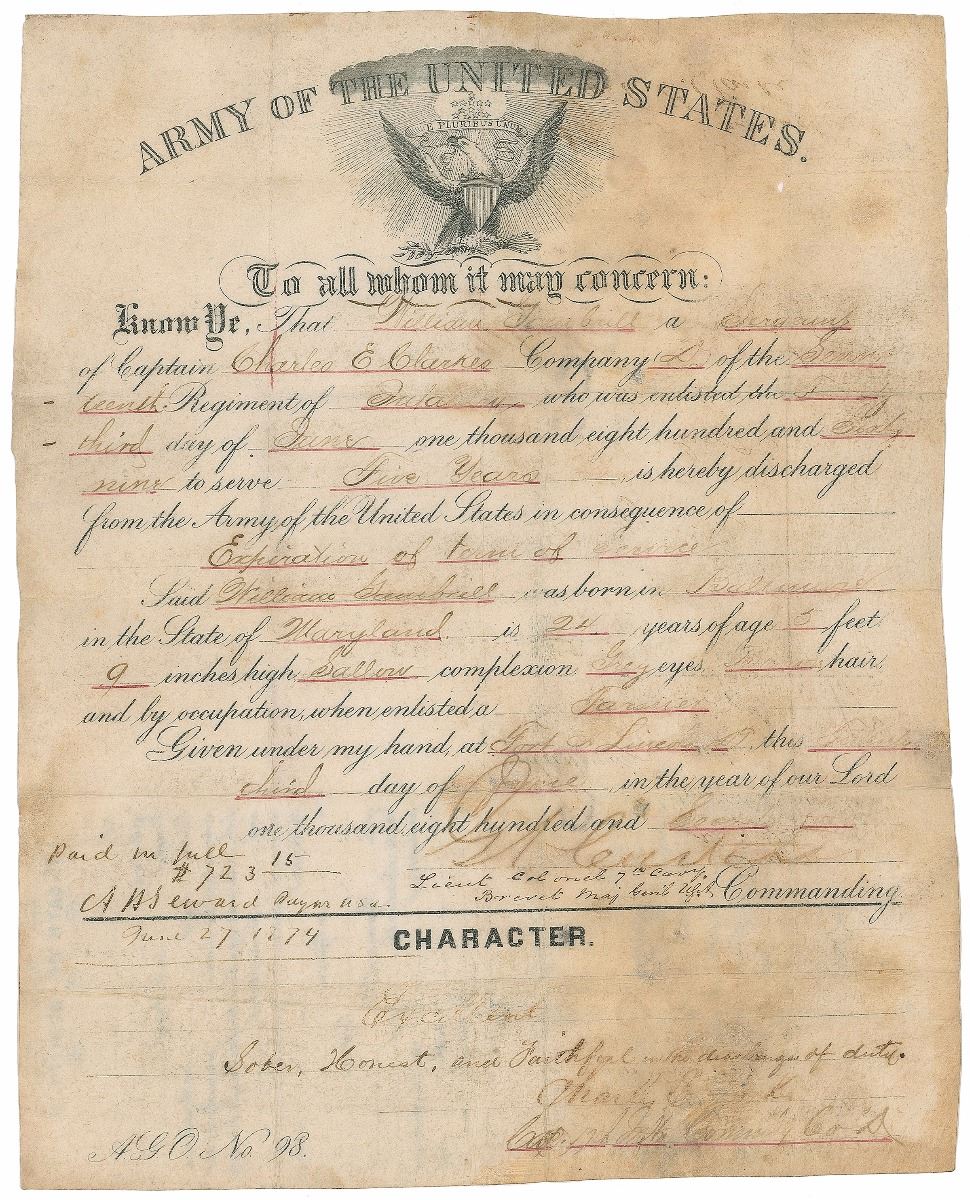 ARMY OF THE UNITED STATES.
E PLURIBUS UNUM
To all whom it may concern:
Know Ye, That William a Sergeant
of Captain Charles E Clarkes Company (D) of the
teenth Regiment of who was enlisted the
third day of June one thousand eight hundred and Sixty
nine to serve Five Years is hereby discharged
from the Army of the United States in consequence of
Expiration of term of service
Said William Gambrill was born in Baltimore
in the State of Maryland is 24 years of age 5 feet
9 inches high, Sallow complexion Grey eyes, hair,
and by occupation, when enlisted a
Given under my hand, at Fort A. Lincoln this
third day of June in the year of our Lord
one thousand eight hundred and
Paid in full
$ 723 15
A H Seward Paymr USA.
June 27 1874
Lieut Colonel 7th Cavy.
Brevet Maj Genl U.S.A. Commanding.
CHARACTER.
Excellent
Sober, Honest, and Faithful in the discharge of duty.
Capt. Co D
A.G.O. No. 98.